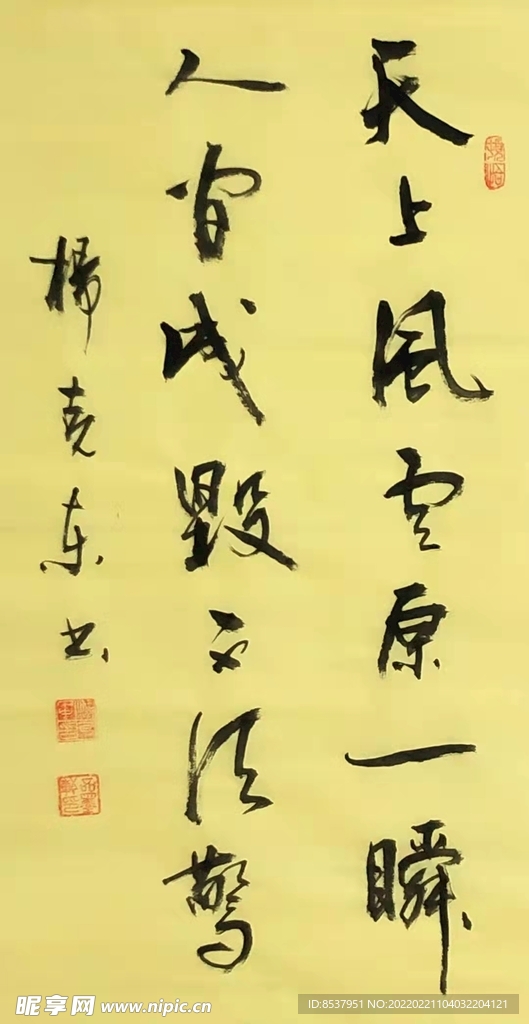 天上风云原一瞬
人间成毁不须惊
杨克东书
昵享网 www.nipic.cn
ID:8537951 NO:20220221104032204121